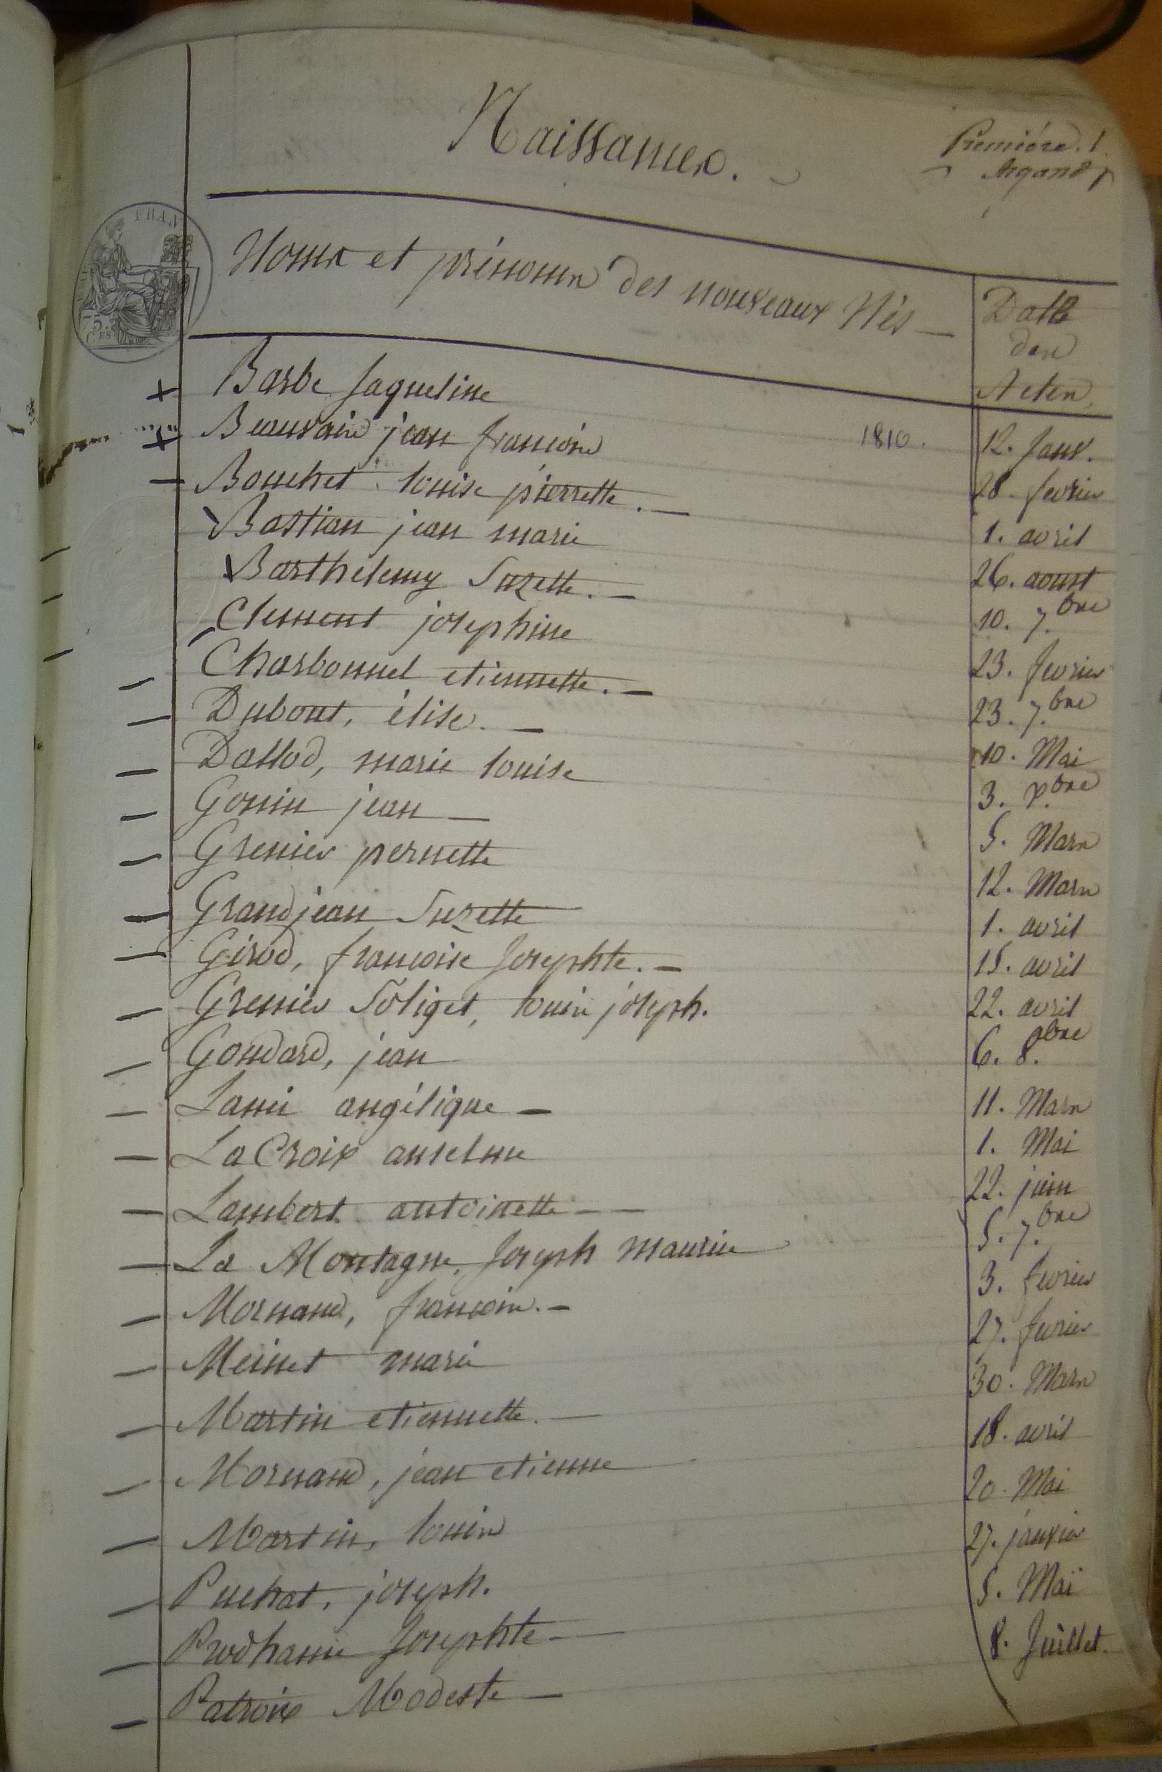 Naissances.
Première. 1.
Argand
FRAN
Noms et prénoms des nouveaux Nés —
Date
des
Actes
Barbe Jaqueline 1810. 12. Janv.
Beauvais jean françois 28. fevrier
Bouchet louise pierrette. — 1. avril
Bastian jean marie 26. aoust
Barthelemy Suzette. — 10. 7.bre
Clement josephine 23. fevrier
Charbonnel etiennette. — 23. 7.bre
Dubout, élise. — 10. Mai
Dallod, marie louise 3. x.bre
Gonin jean — 5. Mars
Grenier pernette 12. Mars
Grandjean Suzette 1. avril
Girod, françoise Josephte. — 15. avril
Grenier Soliget, louis joseph. 22. avril
Goudard, jean 6. 8.bre
Lami angélique — 11. Mars
LaCroix anselme 1. Mai
Lambert antoinette — 22. juin
La Montagne, Joseph maurice 5. 7.bre
Mornand, françois. — 3. fevrier
Meinet marie 27. fevrier
Martin etiennette. — 30. Mars
Mornand, jean etienne 18. avril
Martin, louis 20. Mai
Puchat, joseph. 27. janvier
Prodhami Josephte — 5. Mai
Patroix Modeste — 8. Juillet.